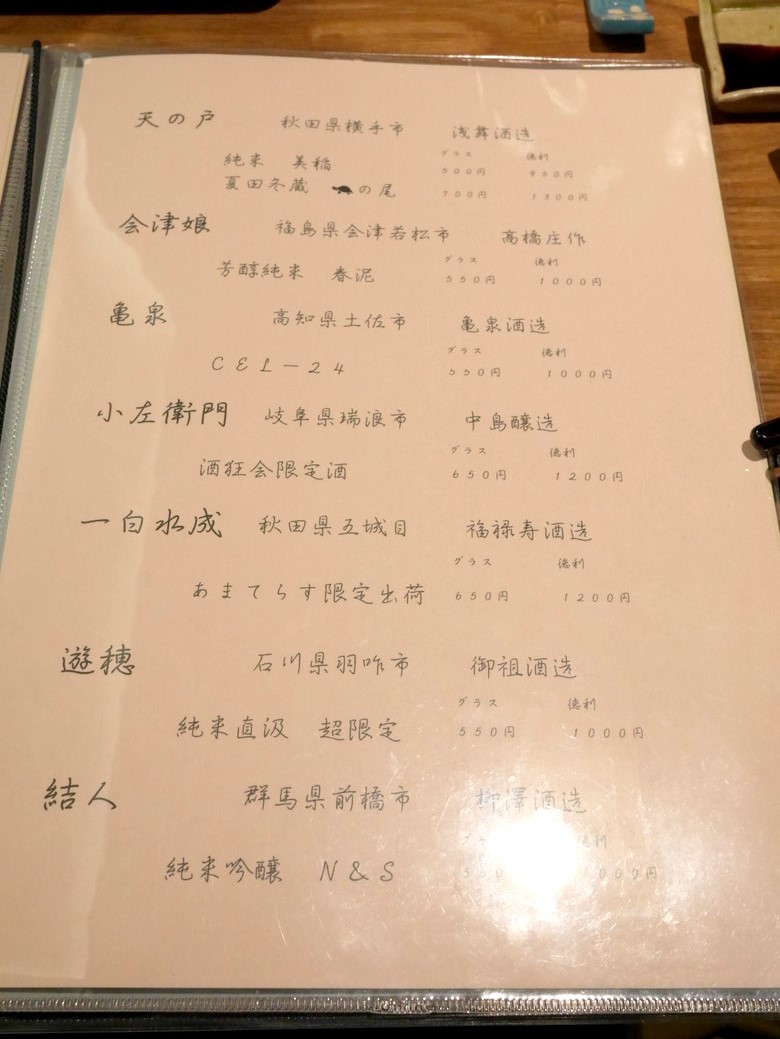 天の戸 秋田県横手市 浅舞酒造
グラス 徳利
純米 美稲 500円 950円
夏田冬蔵 の尾 700円 1300円
会津娘 福島県会津若松市 高橋庄作
グラス 徳利
芳醇純米 春泥 550円 1000円
亀泉 高知県土佐市 亀泉酒造
グラス 徳利
CEL-24 550円 1000円
小左衛門 岐阜県瑞浪市 中島醸造
グラス 徳利
酒狂会限定酒 650円 1200円
一白水成 秋田県五城目 福禄寿酒造
グラス 徳利
あまてらす限定出荷 650円 1200円
遊穂 石川県羽咋市 御祖酒造
グラス 徳利
純米直汲 超限定 550円 1000円
結人 群馬県前橋市 柳澤酒造
徳利
純米吟醸 N&S